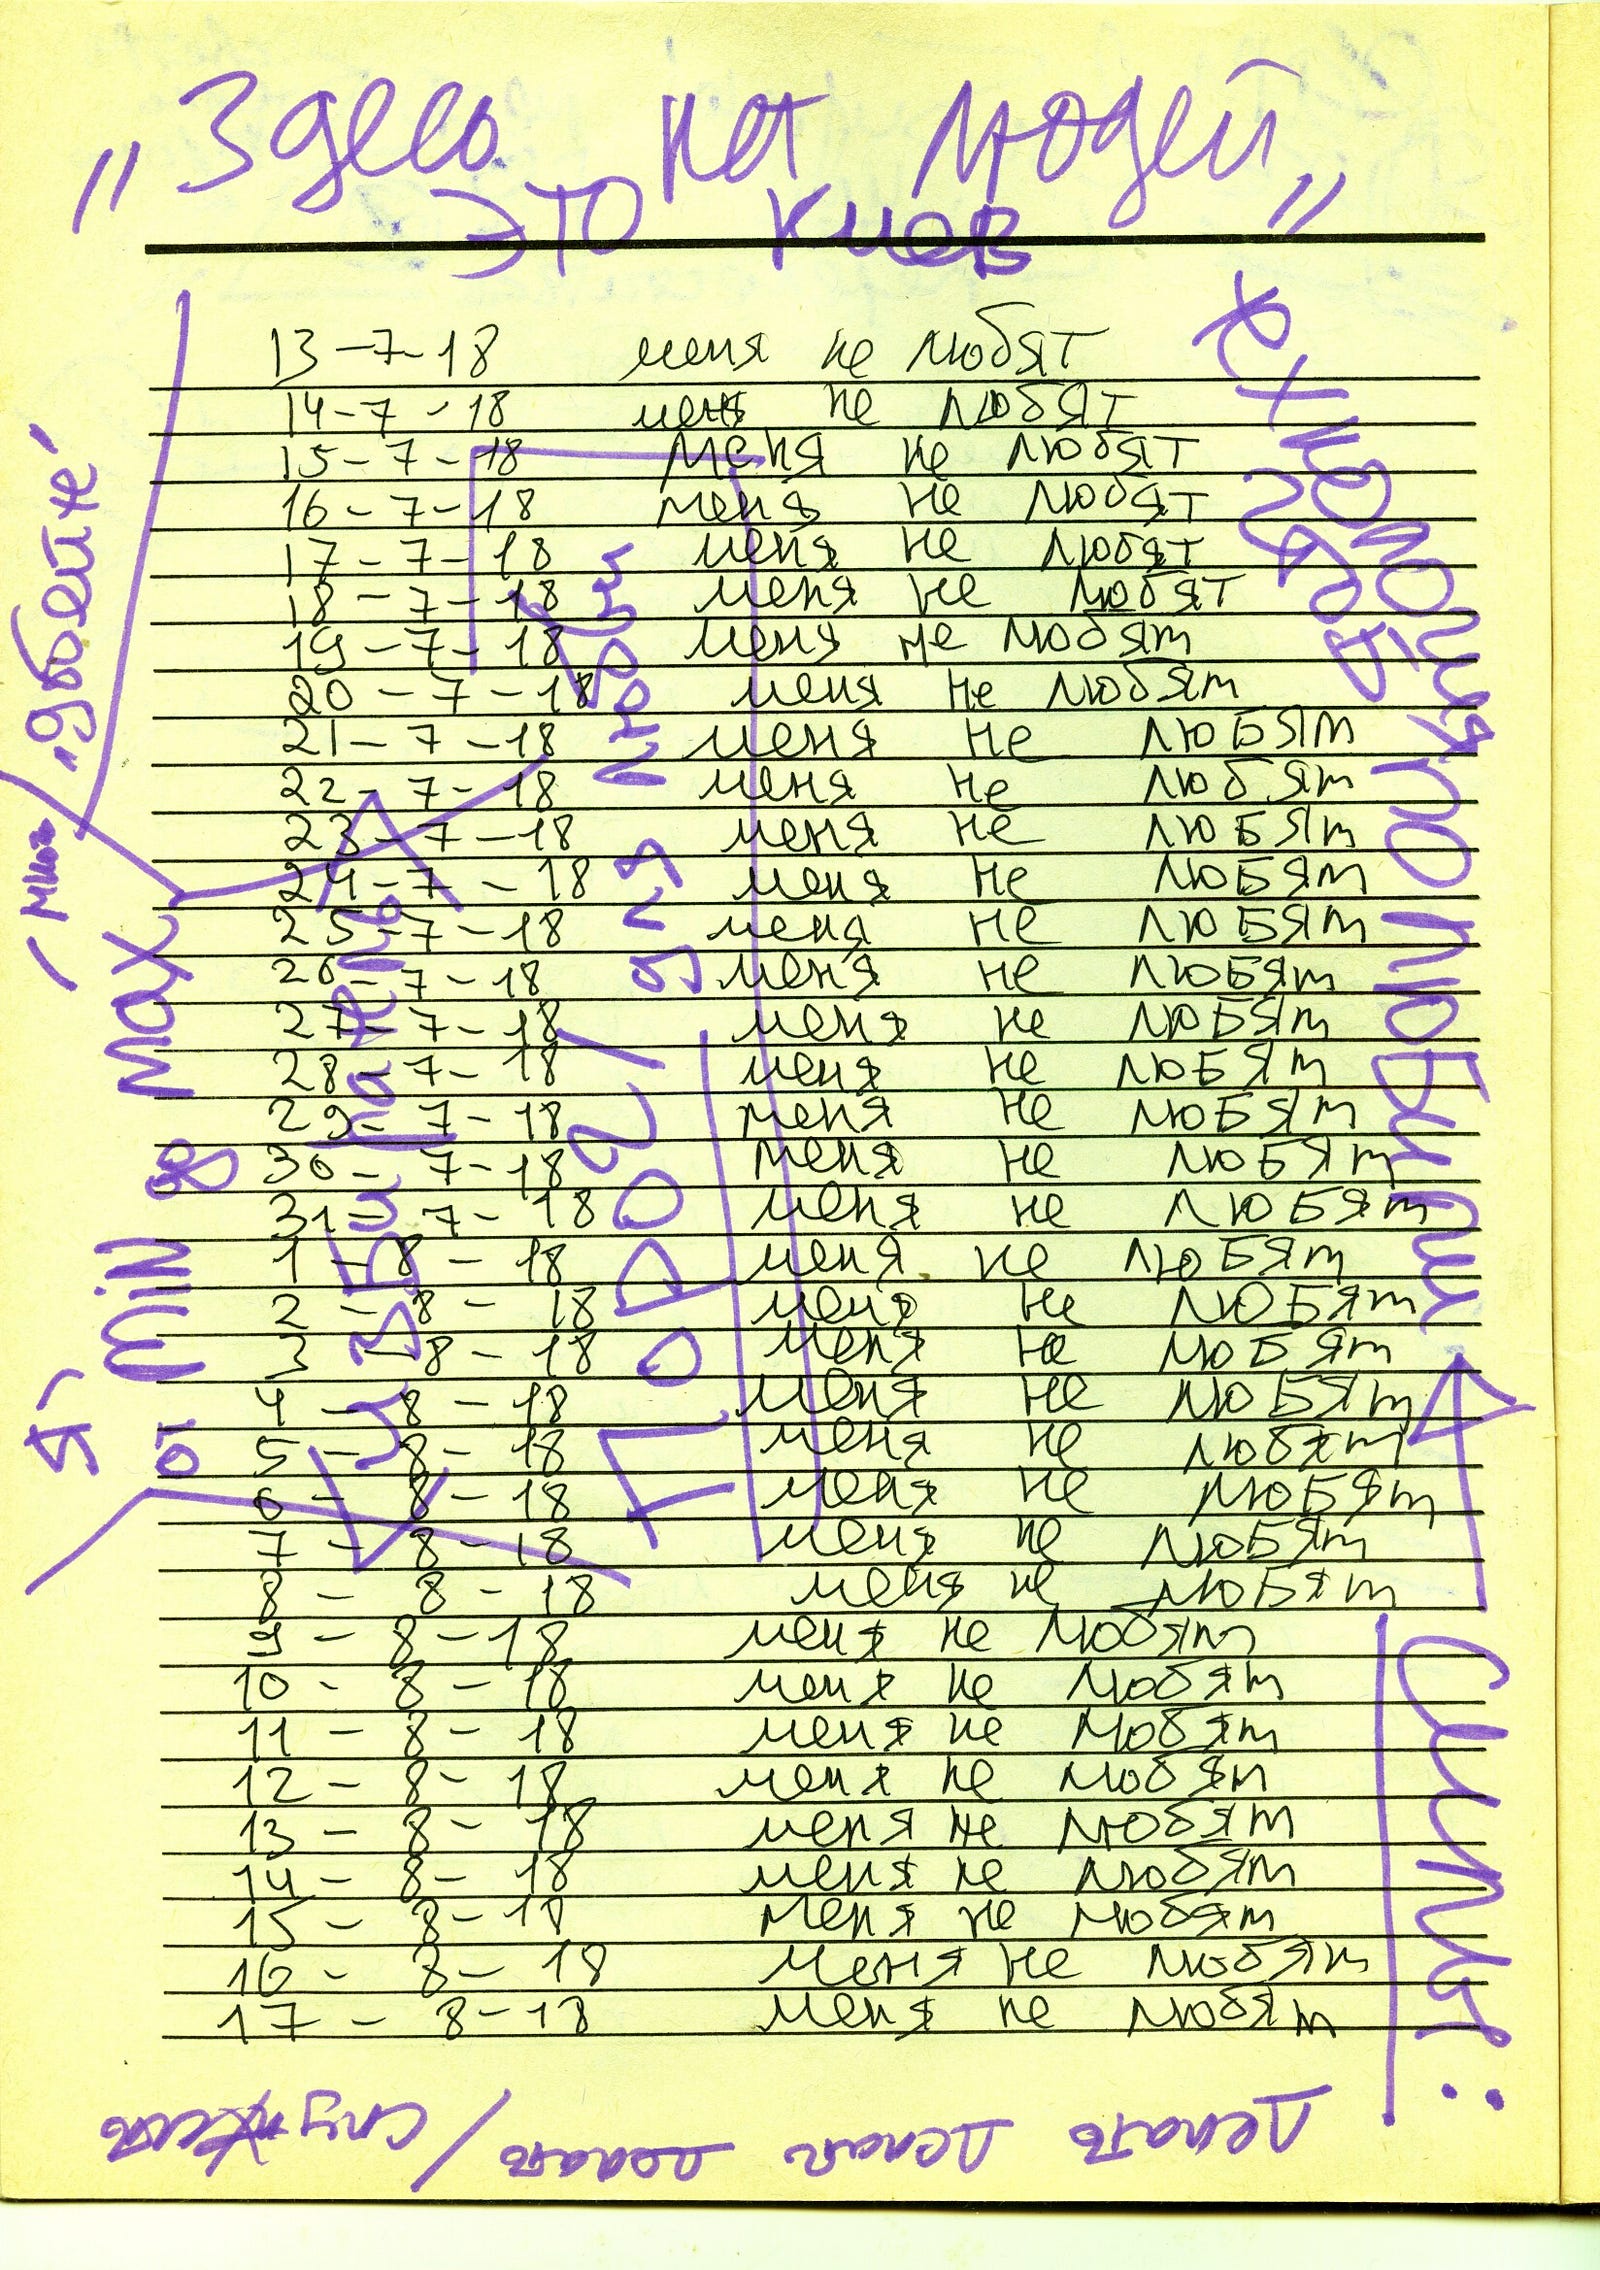 „Здесь нет людей„
это киев
13-7-18 меня не любят
14-7-18 меня не любят
15-7-18 меня не любят
16-7-18 меня не любят
17-7-18 меня не любят
18-7-18 меня не любят
19-7-18 меня не любят
20-7-18 меня не любят
21-7-18 меня не любят
22-7-18 меня не любят
23-7-18 меня не любят
24-7-18 меня не любят
25-7-18 меня не любят
26-7-18 меня не любят
27-7-18 меня не любят
28-7-18 меня не любят
29-7-18 меня не любят
30-7-18 меня не любят
31-7-18 меня не любят
1-8-18 меня не любят
2-8-18 меня не любят
3-8-18 меня не любят
4-8-18 меня не любят
5-8-18 меня не любят
6-8-18 меня не любят
7-8-18 меня не любят
8-8-18 меня не любят
9-8-18 меня не любят
10-8-18 меня не любят
11-8-18 меня не любят
12-8-18 меня не любят
13-8-18 меня не любят
14-8-18 меня не любят
15-8-18 меня не любят
16-8-18 меня не любят
17-8-18 меня не любят
я
от min в max
Город / для любви
чтоб полюбили
Силы:
Делать делая делать / служить